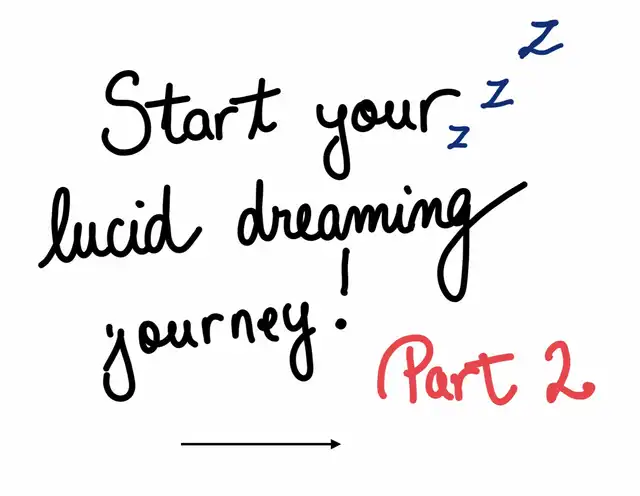 z
z
Start your z
lucid dreaming
journey!
Part 2